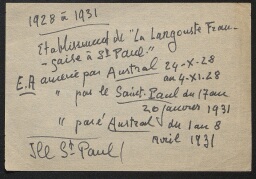 1928 à 1931
Etablissement de "La Langouste Fran-
-çaise à St Paul."
E.A amené par Austral 24-X-28
au 4-XI-28
" par le Saint-Paul du 17 au
20 janvier 1931
" par Austral du 1 au 8
Avril 1931
Ile St Paul